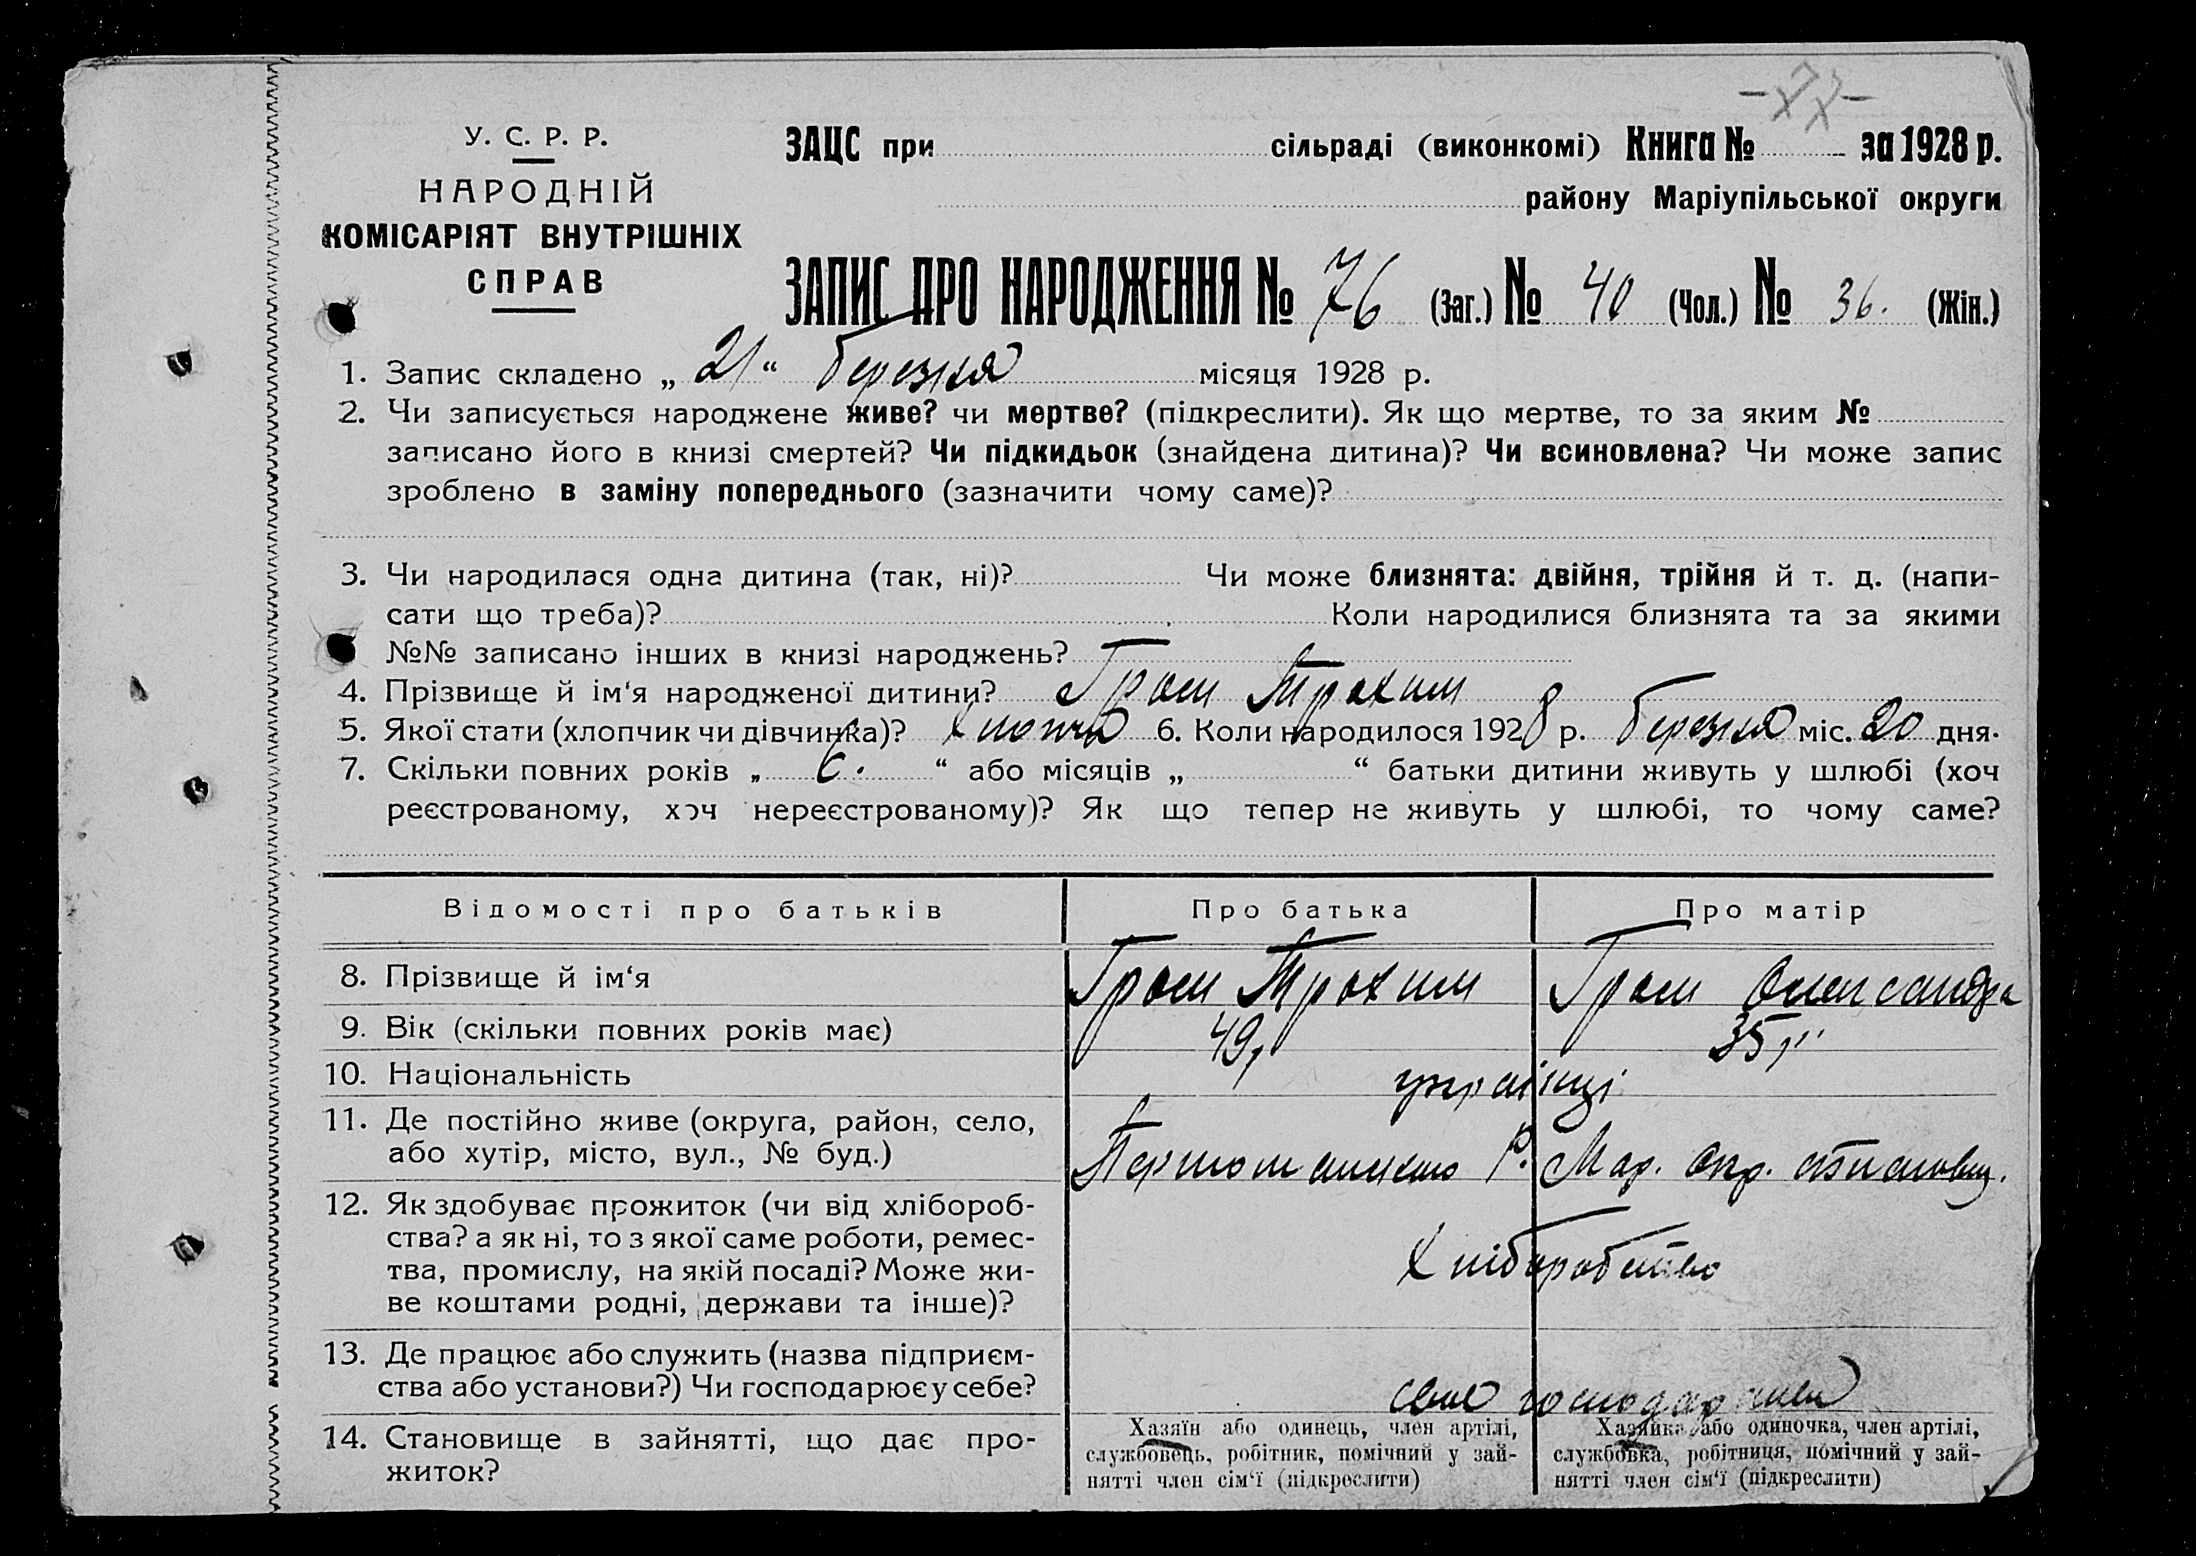 -77-
У. С. Р. Р.
НАРОДНІЙ
КОМІСАРІЯТ ВНУТРІШНІХ
СПРАВ
ЗАЦС при сільраді (виконкомі) Книга № за 1928 р.
району Маріупільської округи
ЗАПИС ПРО НАРОДЖЕННЯ № 76 (Заг.) № 40 (Чол.) № 36. (Жін.)
1. Запис складено „ 21 “ березня місяця 1928 р.
2. Чи записується народжене живе? чи мертве? (підкреслити). Як що мертве, то за яким №
записано його в книзі смертей? Чи підкидьок (знайдена дитина)? Чи всиновлена? Чи може запис
зроблено в заміну попереднього (зазначити чому саме)?
3. Чи народилася одна дитина (так, ні)? Чи може близнята: двійня, трійня й т. д. (напи-
сати що треба)? Коли народилися близнята та за якими
№№ записано інших в книзі народжень?
4. Прізвище й ім‘я народженої дитини? Гром Трохим
5. Якої стати (хлопчик чи дівчинка)? хлопчик 6. Коли народилося 1928 р. березня міс. 20 дня.
7. Скільки повних років „ 6. “ або місяців „ “ батьки дитини живуть у шлюбі (хоч
реєстрованому, хоч нереєстрованому)? Як що тепер не живуть у шлюбі, то чому саме?
Відомості про батьків Про батька Про матір
8. Прізвище й ім‘я Гром Трохим Гром Олександра
9. Вік (скільки повних років має) 49, 35,
10. Національність українці
11. Де постійно живе (округа, район, село,
або хутір, місто, вул., № буд.) Р. Мар. Окр.
12. Як здобуває прожиток (чи від хлібороб-
ства? а як ні, то з якої саме роботи, ремес-
тва, промислу, на якій посаді? Може жи-
ве коштами родні, держави та інше)?
Хліборобство
13. Де працює або служить (назва підприєм-
ства або установи?) Чи господарює у себе?
своє
14. Становище в зайнятті, що дає про-
житок?
Хазяїн або одинець, член артілі,
службовець, робітник, помічний у зай-
нятті член сім‘ї (підкреслити)
Хазяйка або одиночка, член артілі,
службовка, робітниця, помічний у зай-
нятті член сім‘ї (підкреслити)